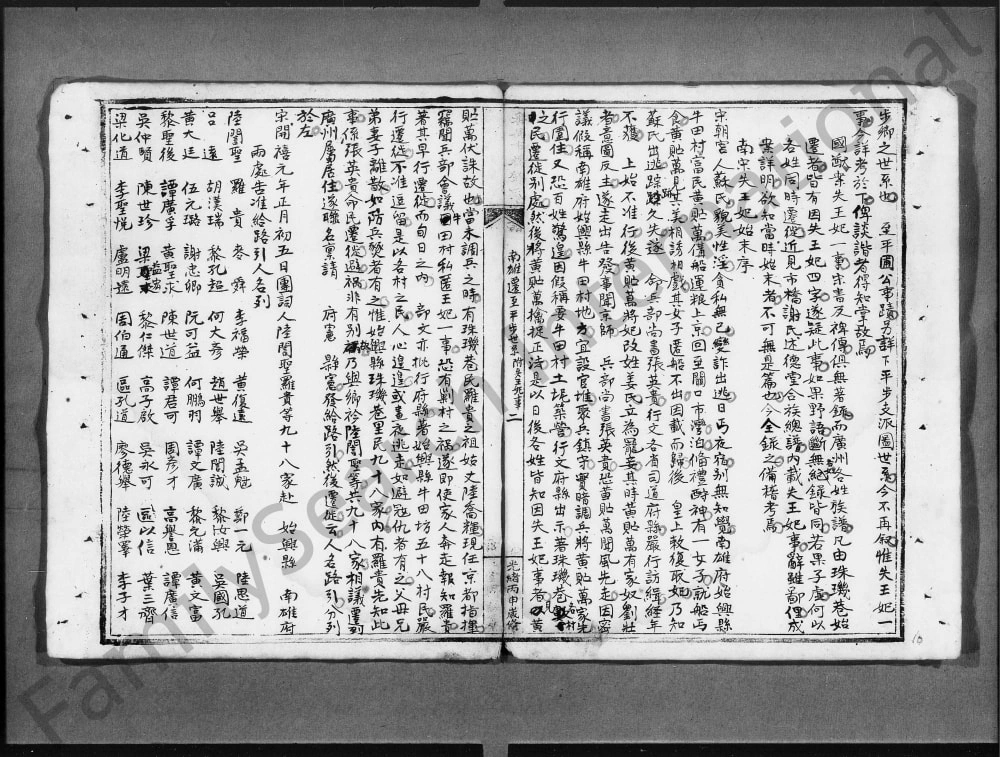 步卿之世系也 至平圃公事蹟另詳下平步支派圖世系今不再叙惟失王妃一
事今詳考於下俾談諧者得知掌故焉
國鹹棠失王妃一事宗書及稗傳俱無著錄而廣州各姓族譜凡由珠璣巷始
遷者皆有因失王妃四字逐疑此事如果野語斷無紀錄皆同若果子虛何以
各姓同時遷徙近見市橋謝氏述德堂合族總譜內載失王妃事辭雖鄙俚成
案詳明欲知當時始末者不可無是篇也今全錄之備稽考焉
南宋失王妃始末序
宋朝宮人蘇氏貌美性淫貪私無已變詐出逃日丐夜宿別無知覺南雄府始興縣
牛田村富民黃貯萬備船運糧上京回至關口市灣泊備禮酧神有一女子就船丐
食黃貯萬見其美相誘相戲其女子匿船不出因載而歸後 皇上敕復取妃乃知
蘇氏出逃蹤跡久失遂 部兵部尚書張英貴行文各省司道府縣嚴行訪緝經年
不獲 上始不准行後黃貯萬將妃改姓姜氏立為寵妾其時黃貯萬有家奴劉壯
者意圖反主遂走出告發事聞京師 兵部尚書張英貴恐黃貯萬聞風先走因密
議假稱南雄府始興縣牛田村地方宜設官堆聚兵鎮守實暗調兵將黃貯萬家先
行圍住又恐百姓驚遑因假稱要牛田村土塊築營行文府縣出示著珠璣巷各村
之民遷徙別處然後將黃貯萬擒捉正法是以日後各姓皆知因失王妃事者以黃
南雄遷至平步世系 附失王妃事 二
光緒丙申歲修
貯萬伏誅故也當未調兵之時有珠璣巷民羅貴之祖姑丈陸喬糧現任京都指揮
竊聞兵部會議牛田村私匿王妃一事恐有剿村之禍遂即使家人奔走報知羅貴
著其早行遷徙而旬日之內 部文亦批行府縣著始興縣牛田坊五十八村民嚴
行遷徙不准逗留是以各村之民人心遑遑或晝夜逃走如避寇仇者有之父母兄
弟妻子離散如防兵燹者有之惟始興縣珠璣巷里民九十八家內有羅貴先知此
事係張英貴命民遷徙避禍非有別故乃與鄉衿陸誾聖等共九十八家相議遷到
廣州屬居住遂聯名稟請 府憲 縣憲發給路引然後遷徙云人名路引分列
於左
宋開禧元年正月初五日團詞人陸誾聖羅貴等九十八家赴 始興縣 南雄府
兩處告准給路引人名列
陸誾聖 羅貴 麥舜 李福榮 黃復遠 吳孟魁 鄭一元 陸思道
呂遠 胡漢瑞 黎孔超 何大彥 趙世舉 陸聞誠 黎汝興 吳國孔
黃大廷 伍元璐 謝忠卿 阮可益 何鵬羽 譚文廣 黎元滿 黃文富
黎聖後 譚廣孚 黃聖求 陳世道 譚君可 周彥才 高譽愚 譚廣信
吳仲賢 陳世珍 梁益遜 黎仁傑 高子啟 吳永可 區以信 葉三齊
梁化道 李聖悦 盧明遠 周伯通 區孔道 廖德舉 陸榮澤 李子才
10
FamilySearch International